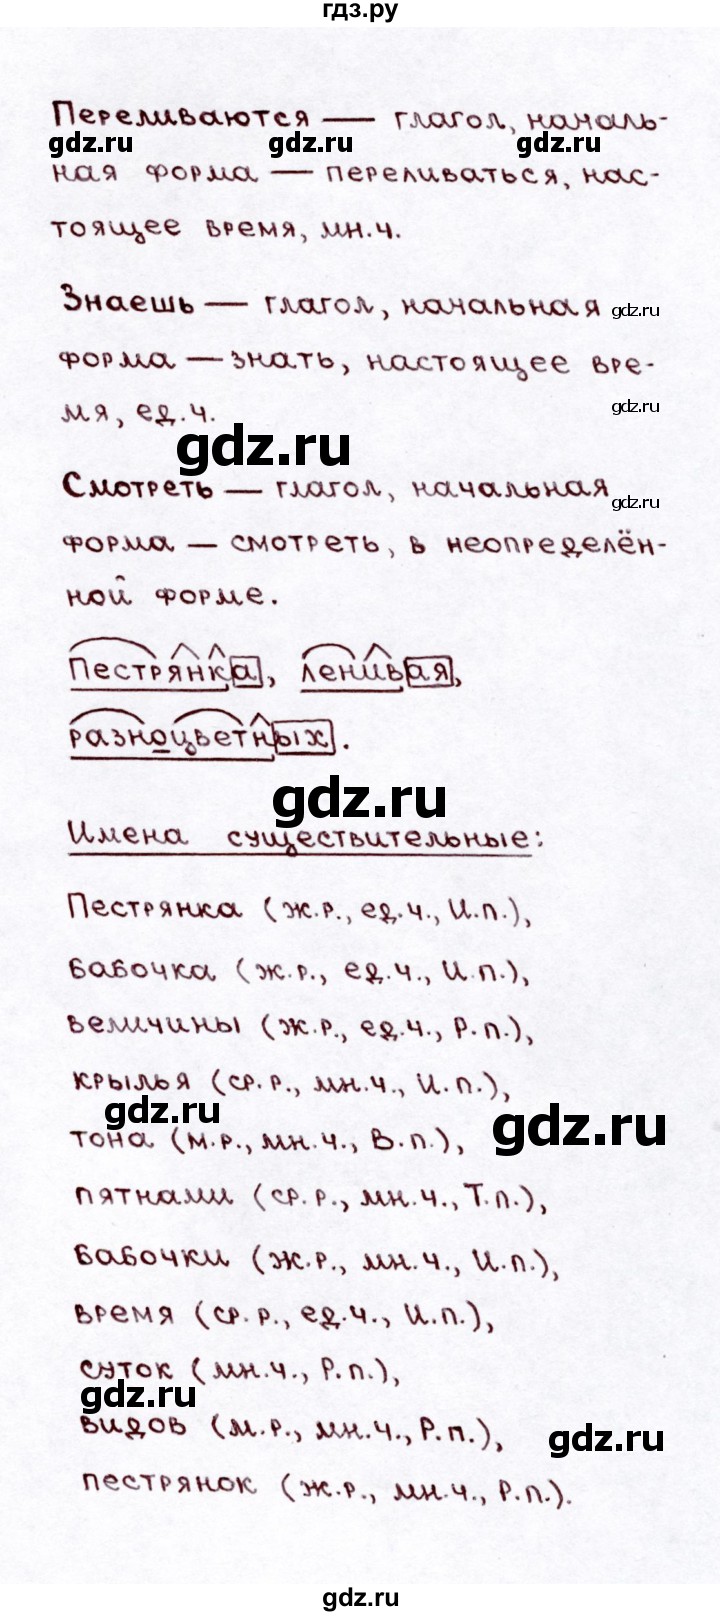 гдз.ру
Переливаются — глагол, началь-
gdz.ru gdz.ru gdz.ru
ная форма — переливаться, нас-
тоящее время, мн.ч.
Знаешь — глагол, начальная
gdz.ru
форма — знать, настоящее вре-
мя, ед.ч.
gdz.ru
gdz.ru
Смотреть — глагол, начальная
gdz.ru
форма — смотреть, в неопределён-
ной форме.
Пестрянка, ленивая,
разноцветных.
gdz.ru
Имена существительные:
Пестрянка (ж.р., ед.ч., И.п.),
бабочка (ж.р., ед.ч., И.п.),
величины (ж.р., ед.ч., Р.п.),
крылья (ср.р., мн.ч., И.п.),
gdz.ru gdz.ru
тона (м.р., мн.ч., В.п.),
пятнами (ср.р., мн.ч., Т.п.),
бабочки (ж.р., мн.ч., И.п.),
время (ср.р., ед.ч., И.п.),
суток (мн.ч., Р.п.),
gdz.ru
видов (м.р., мн.ч., Р.п.),
gdz.ru
пестрянок (ж.р., мн.ч., Р.п.).
gdz.ru